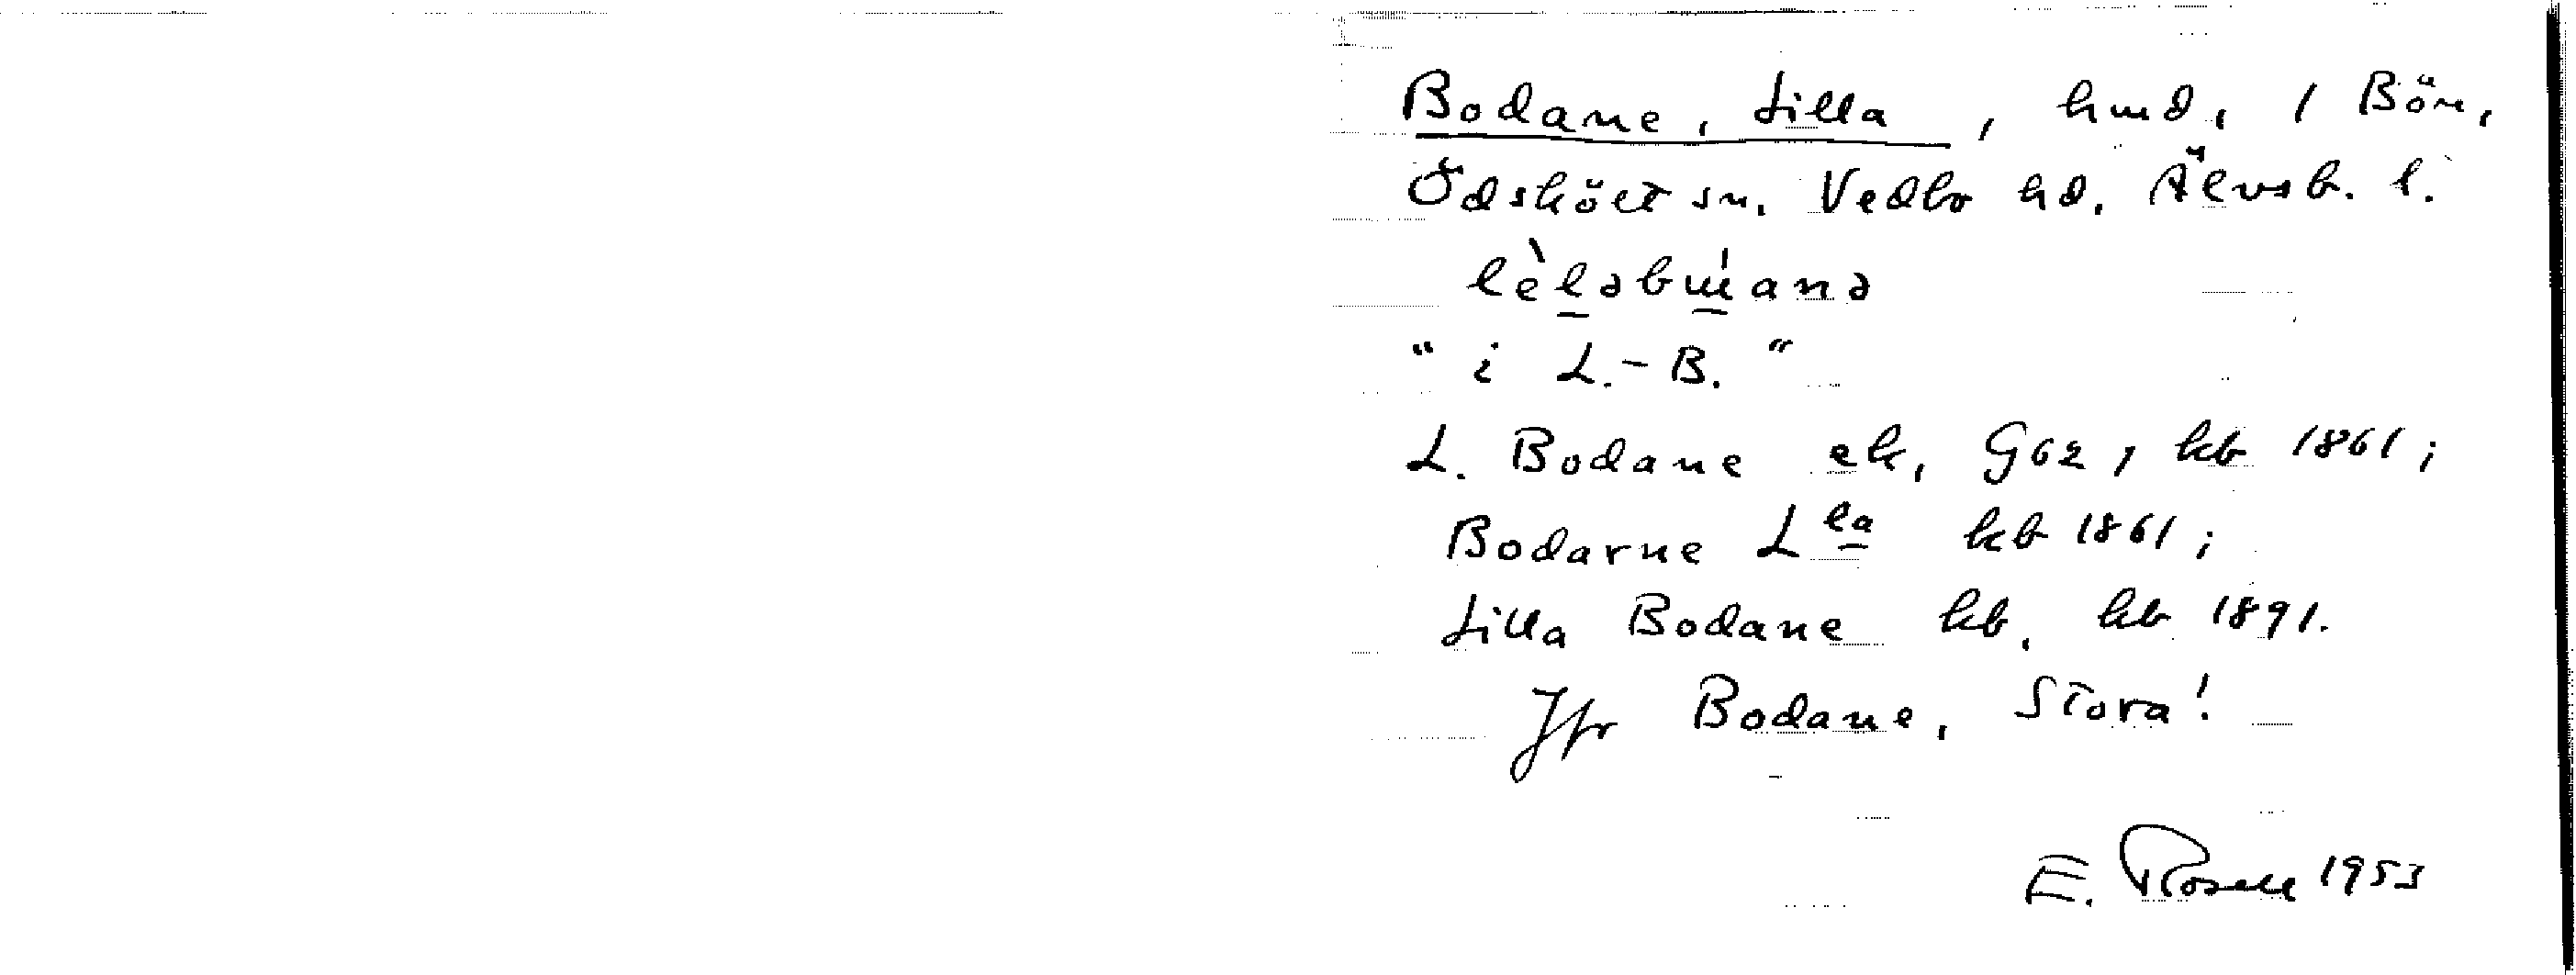 Bodane, Lilla, hmd, 1 Bön,
Ödskölt sn. Vedbo hd. Älvsb. l.
lèləbɯ́anə
" i L.-B. "
L. Bodane ek, G62, kb 1861;
Bodarne Lla kb 1861;
Lilla Bodane kb, kb 1891.
Jfr Bodane, Stora!
E. Rosell 1953